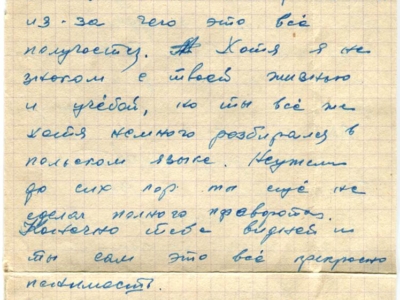 из-за чего это всё
получается. Хотя я не
знаком с твоей жизнью
и учёбой, но ты всё же
хотя немного разбирался в
польском языке. Неужели
до сих пор ты ещё не
сделал полного
Конечно тебе видней и
ты сам это всё прекрасно
понимаешь.